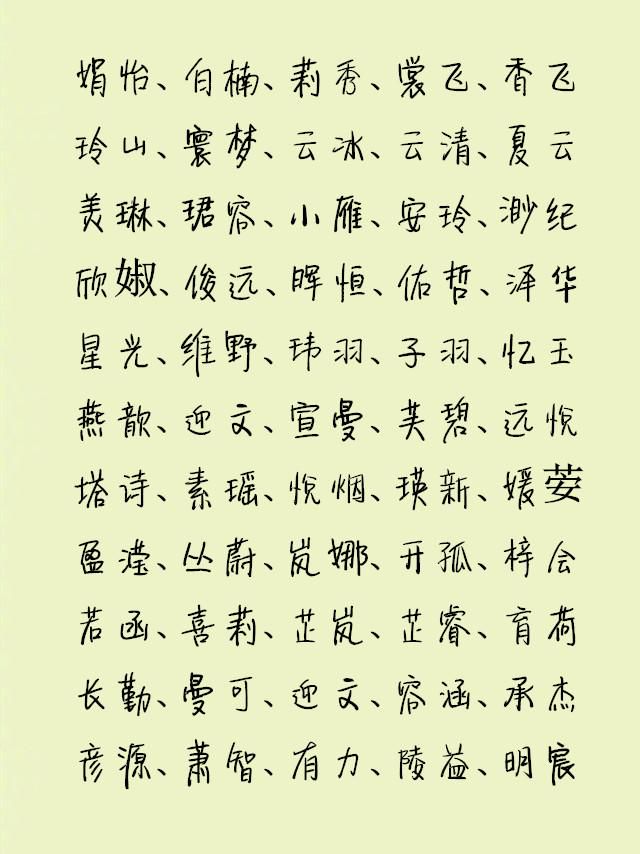 娟怡、白楠、莉秀、裳飞、香飞
玲山、寰梦、云冰、云清、夏云
美琳、珺容、小雁、安玲、渺纪
欣婌、俊远、晖恒、佑哲、泽华
星光、维野、玮羽、子羽、忆玉
燕歆、迎文、宣曼、芙碧、远悦
塔诗、素瑶、悦烟、瑛新、媛荌
盈滢、丛蔚、岚娜、开孤、梓会
若函、喜莉、芷岚、芷睿、育荷
长勤、曼可、迎文、容涵、承杰
彦源、萧智、有力、陵益、明宸